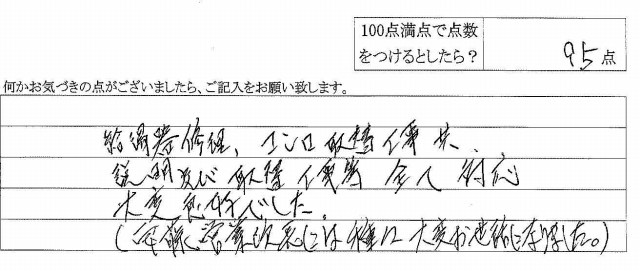 100点満点で点数
をつけるとしたら？ 95点
何かお気づきの点がございましたら、ご記入をお願い致します。
給湯器修理、コンロ取替工事共、
説明及び取替工事等全て対応
大変良好でした。
(営業次長には種々大変お世話になりました。)